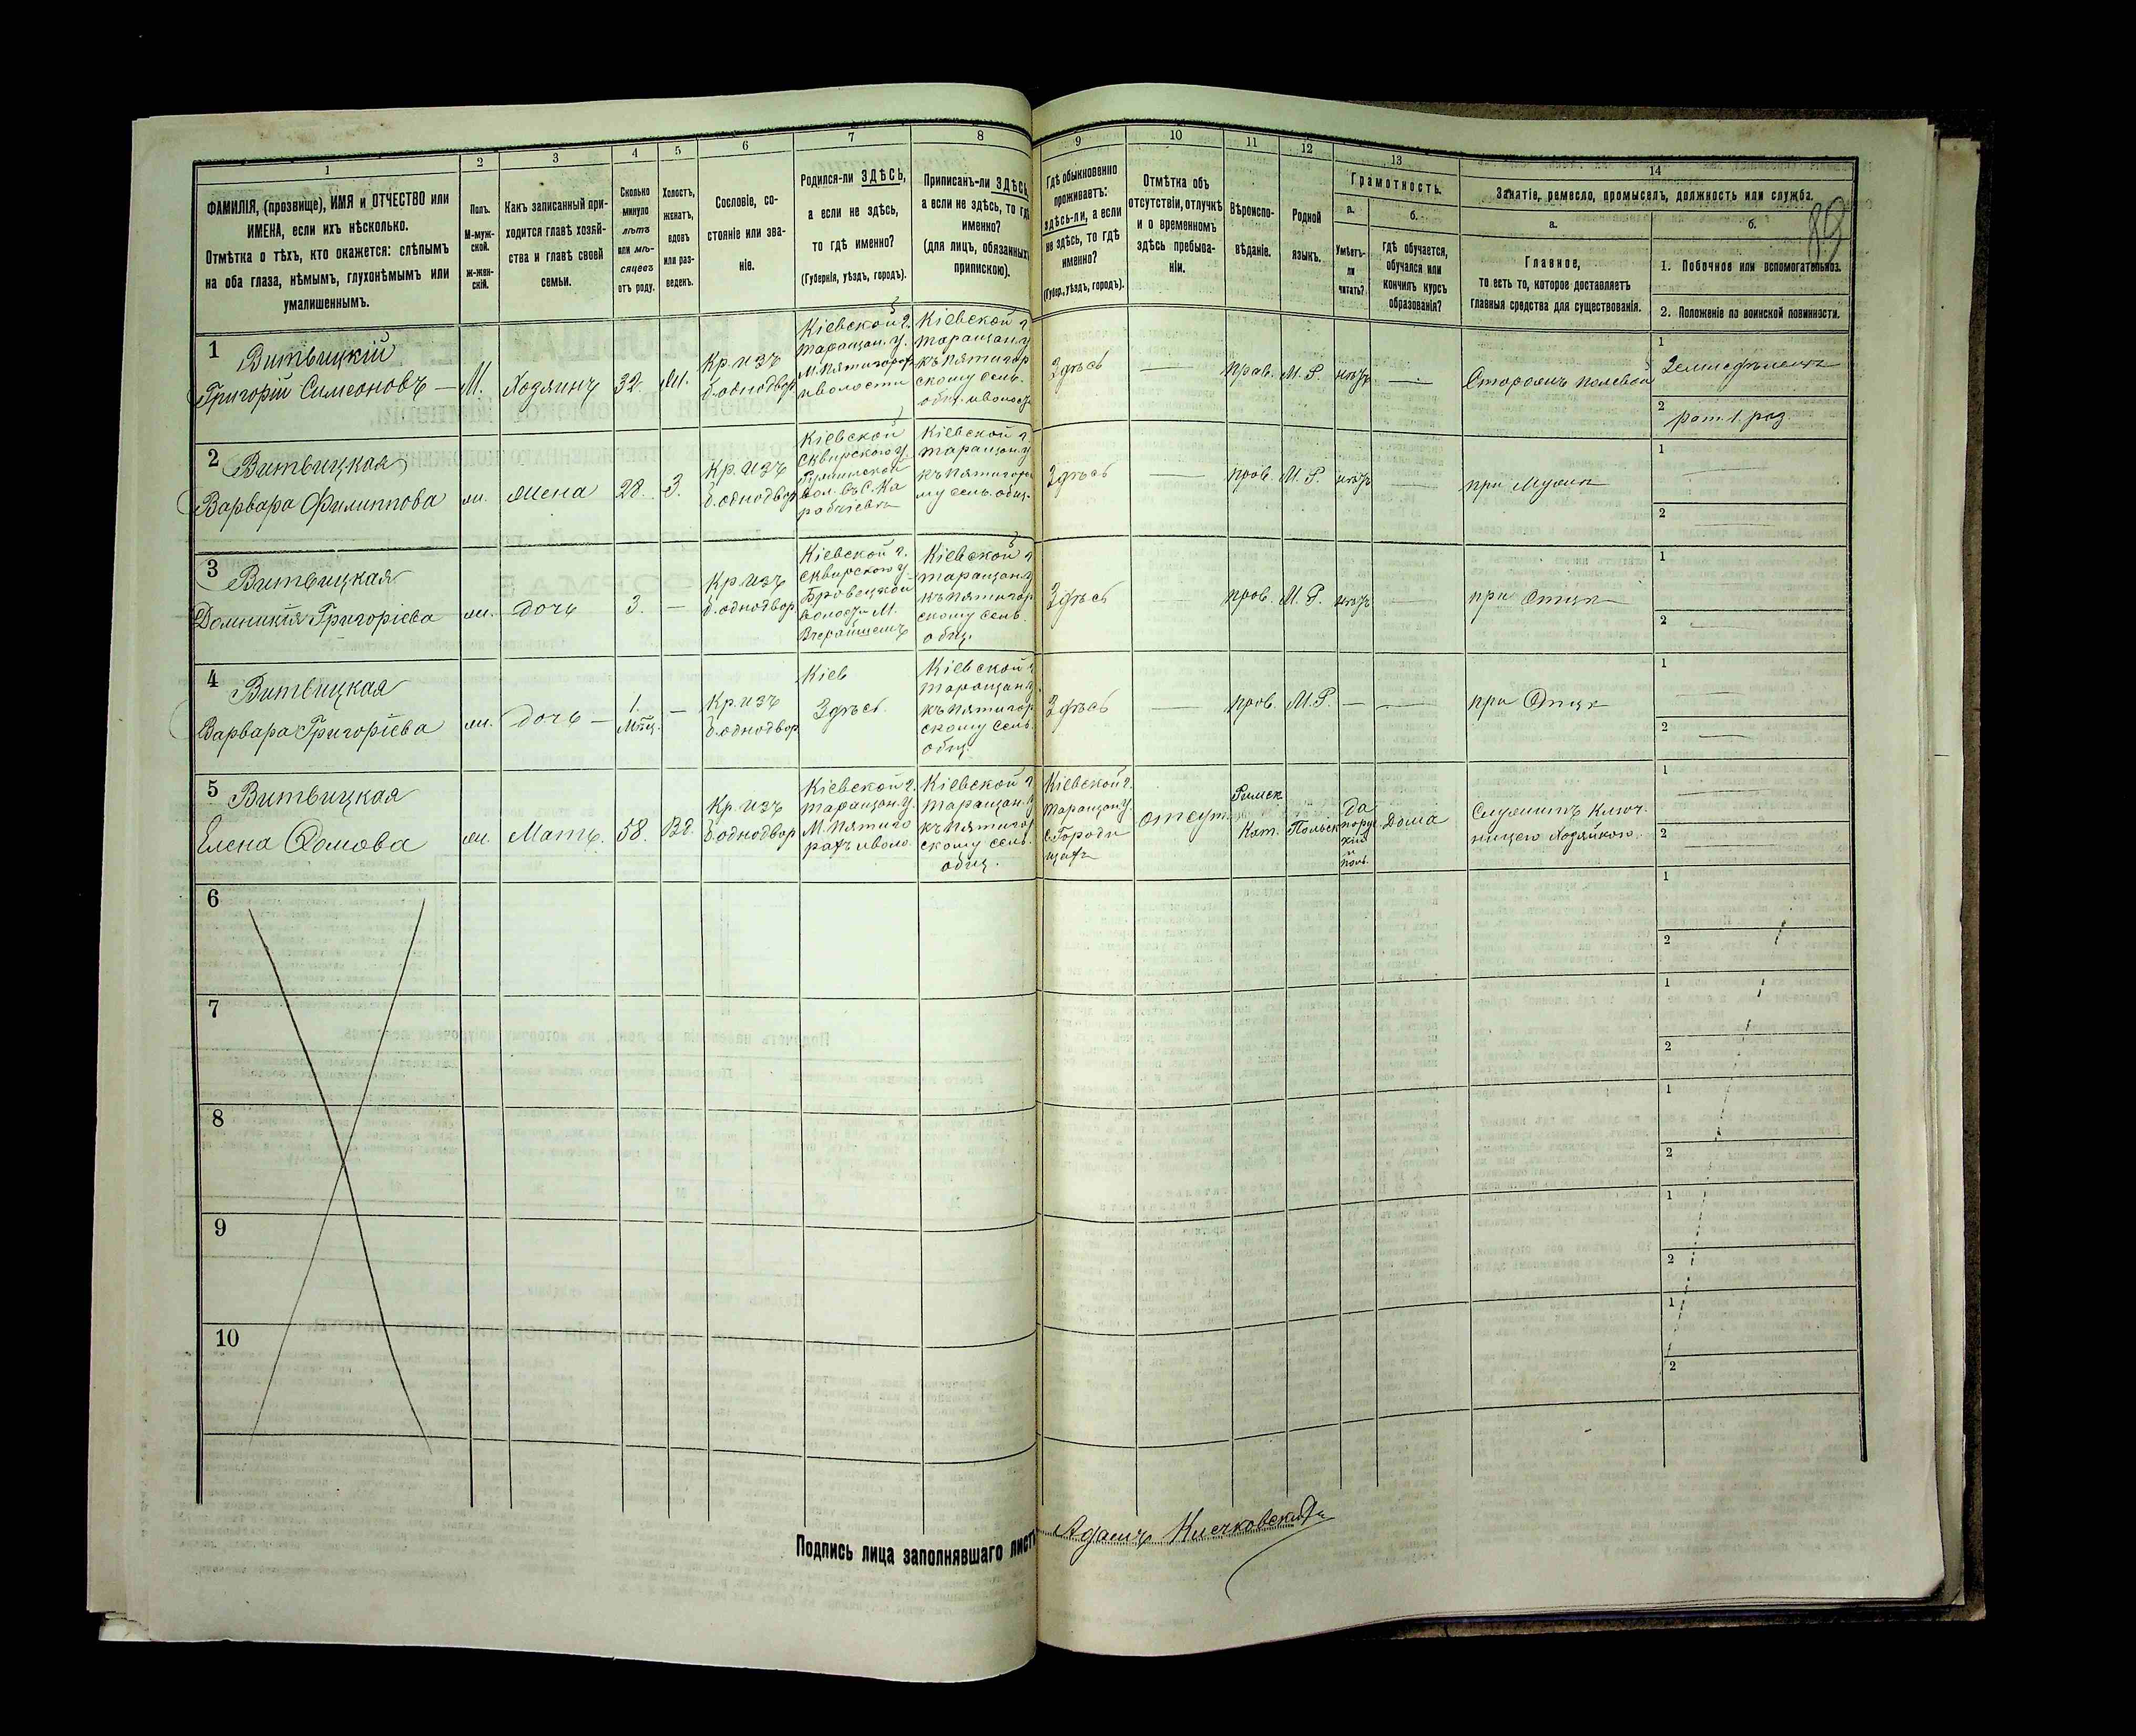 1
2
3
4
5
6
7
8
9
10
11
12
13
14
89
ФАМИЛІЯ, (прозвище), ИМЯ и ОТЧЕСТВО или
ИМЕНА, если ихъ нѣсколько.
Отмѣтка о тѣхъ, кто окажется: слѣпымъ
на оба глаза, нѣмымъ, глухонѣмымъ или
умалишеннымъ.
Полъ.
М-муж-
ской.
ж-жен-
скій.
Какъ записанный при-
ходится главѣ хозяй-
ства и главѣ своей
семьи.
Сколько
минуло
лѣтъ
или мѣ-
сяцевъ
отъ роду.
Холостъ,
женатъ,
вдовъ
или раз-
веденъ.
Сословіе, со-
стояніе или зва-
ніе.
Родился-ли ЗДѢСЬ,
а если не здѣсь,
то гдѣ именно?
(Губернія, уѣздъ, городъ).
Приписанъ-ли ЗДѢСЬ
а если не здѣсь, то гдѣ
именно?
(для лицъ, обязанныхъ
припискою).
Гдѣ обыкновенно
проживаетъ:
здѣсь-ли, а если
не здѣсь, то гдѣ
именно?
(Губер., уѣздъ, городъ).
Отмѣтка объ
отсутствіи, отлучкѣ
и о временномъ
здѣсь пребыва-
ніи.
Вѣроиспо-
вѣданіе.
Родной
языкъ.
Грамотность.
а.
Умѣетъ-
ли
читать?
б.
гдѣ обучается,
обучался или
кончилъ курсъ
образованія?
Занятіе, ремесло, промыселъ, должность или служба.
а.
Главное,
то есть то, которое доставляетъ
главныя средства для существованія.
б.
1. Побочное или вспомогательное.
2. Положеніе по воинской повинности.
1
Витвицкій
Григорій Симеоновъ
М.
Хозяинъ
32.
Ж.
Кр. изъ
б. однодвор
Кіевской г.
Таращан. у.
М. Пятигорах
и волости
Кіевской г
Таращан. у
къ Пятигор
скому сель.
общ. и волости
Здѣсь
—
прав.
М. Р.
нѣтъ
—
Сторожъ полевой
1
Земледѣлецъ
2
рат. 1 раз
2
Витвицкая
Варвара Филиппова
ж.
Жена
28.
З.
Кр. изъ
б. однодвор
Кіевской
Сквирского у
Кіевской г
Таращан. у
общ.
Здѣсь
—
прав.
М. Р.
нѣтъ
—
при Мужѣ
1
2
3
Витвицкая
Домникія Григоріева
ж.
дочь
3.
—
Кр. изъ
б. однодвор
Кіевской г.
Сквирского у
волости М.
Вчерайшемъ
Кіевской г
Таращан. у
къ Пятигор
скому сель.
общ.
Здѣсь
—
прав.
М. Р.
нѣтъ
—
при Отцѣ
1
2
4
Витвицкая
Варвара Григоріева
ж.
дочь
1.
Мѣсц.
—
Кр. изъ
б. однодвор
Кіев
Здѣсь
Кіевской г
Таращан. у.
къ Пятигор
скому сель.
общ.
Здѣсь
—
прав.
М. Р.
—
—
при Отцѣ
1
2
5
Витвицкая
Елена Фомова
ж.
Мать.
58.
Вд.
Кр. изъ
б. однодвор
Кіевской г.
Таращан. у.
М. Пятиго
рахъ и воло.
Кіевской г
Таращан. у
къ Пятигор
скому сель.
общ.
Кіевской г.
Таращан у
с. Городи
щахъ
отсут
Римск
Кат.
Польск
Да
по рус
ски
и
поль.
Дома
Служитъ ключ-
ницею хозяйкою.
1
2
6
1
2
7
1
2
8
1
2
9
1
2
10
1
2
Подпись лица заполнявшаго листъ
Адамъ